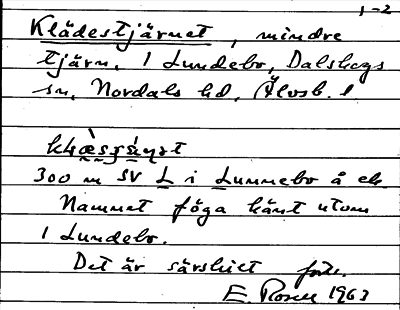 1-2
Klädestjärnet, mindre
tjärn, 1 Lundebo, Dalskogs
sn, Nordals hd, Älvsb. l
300 m SV L i Lunnebo å ek.
Namnet föga känt utom
1 Lundebo.
Det är särskilt
E. Rosell 1963